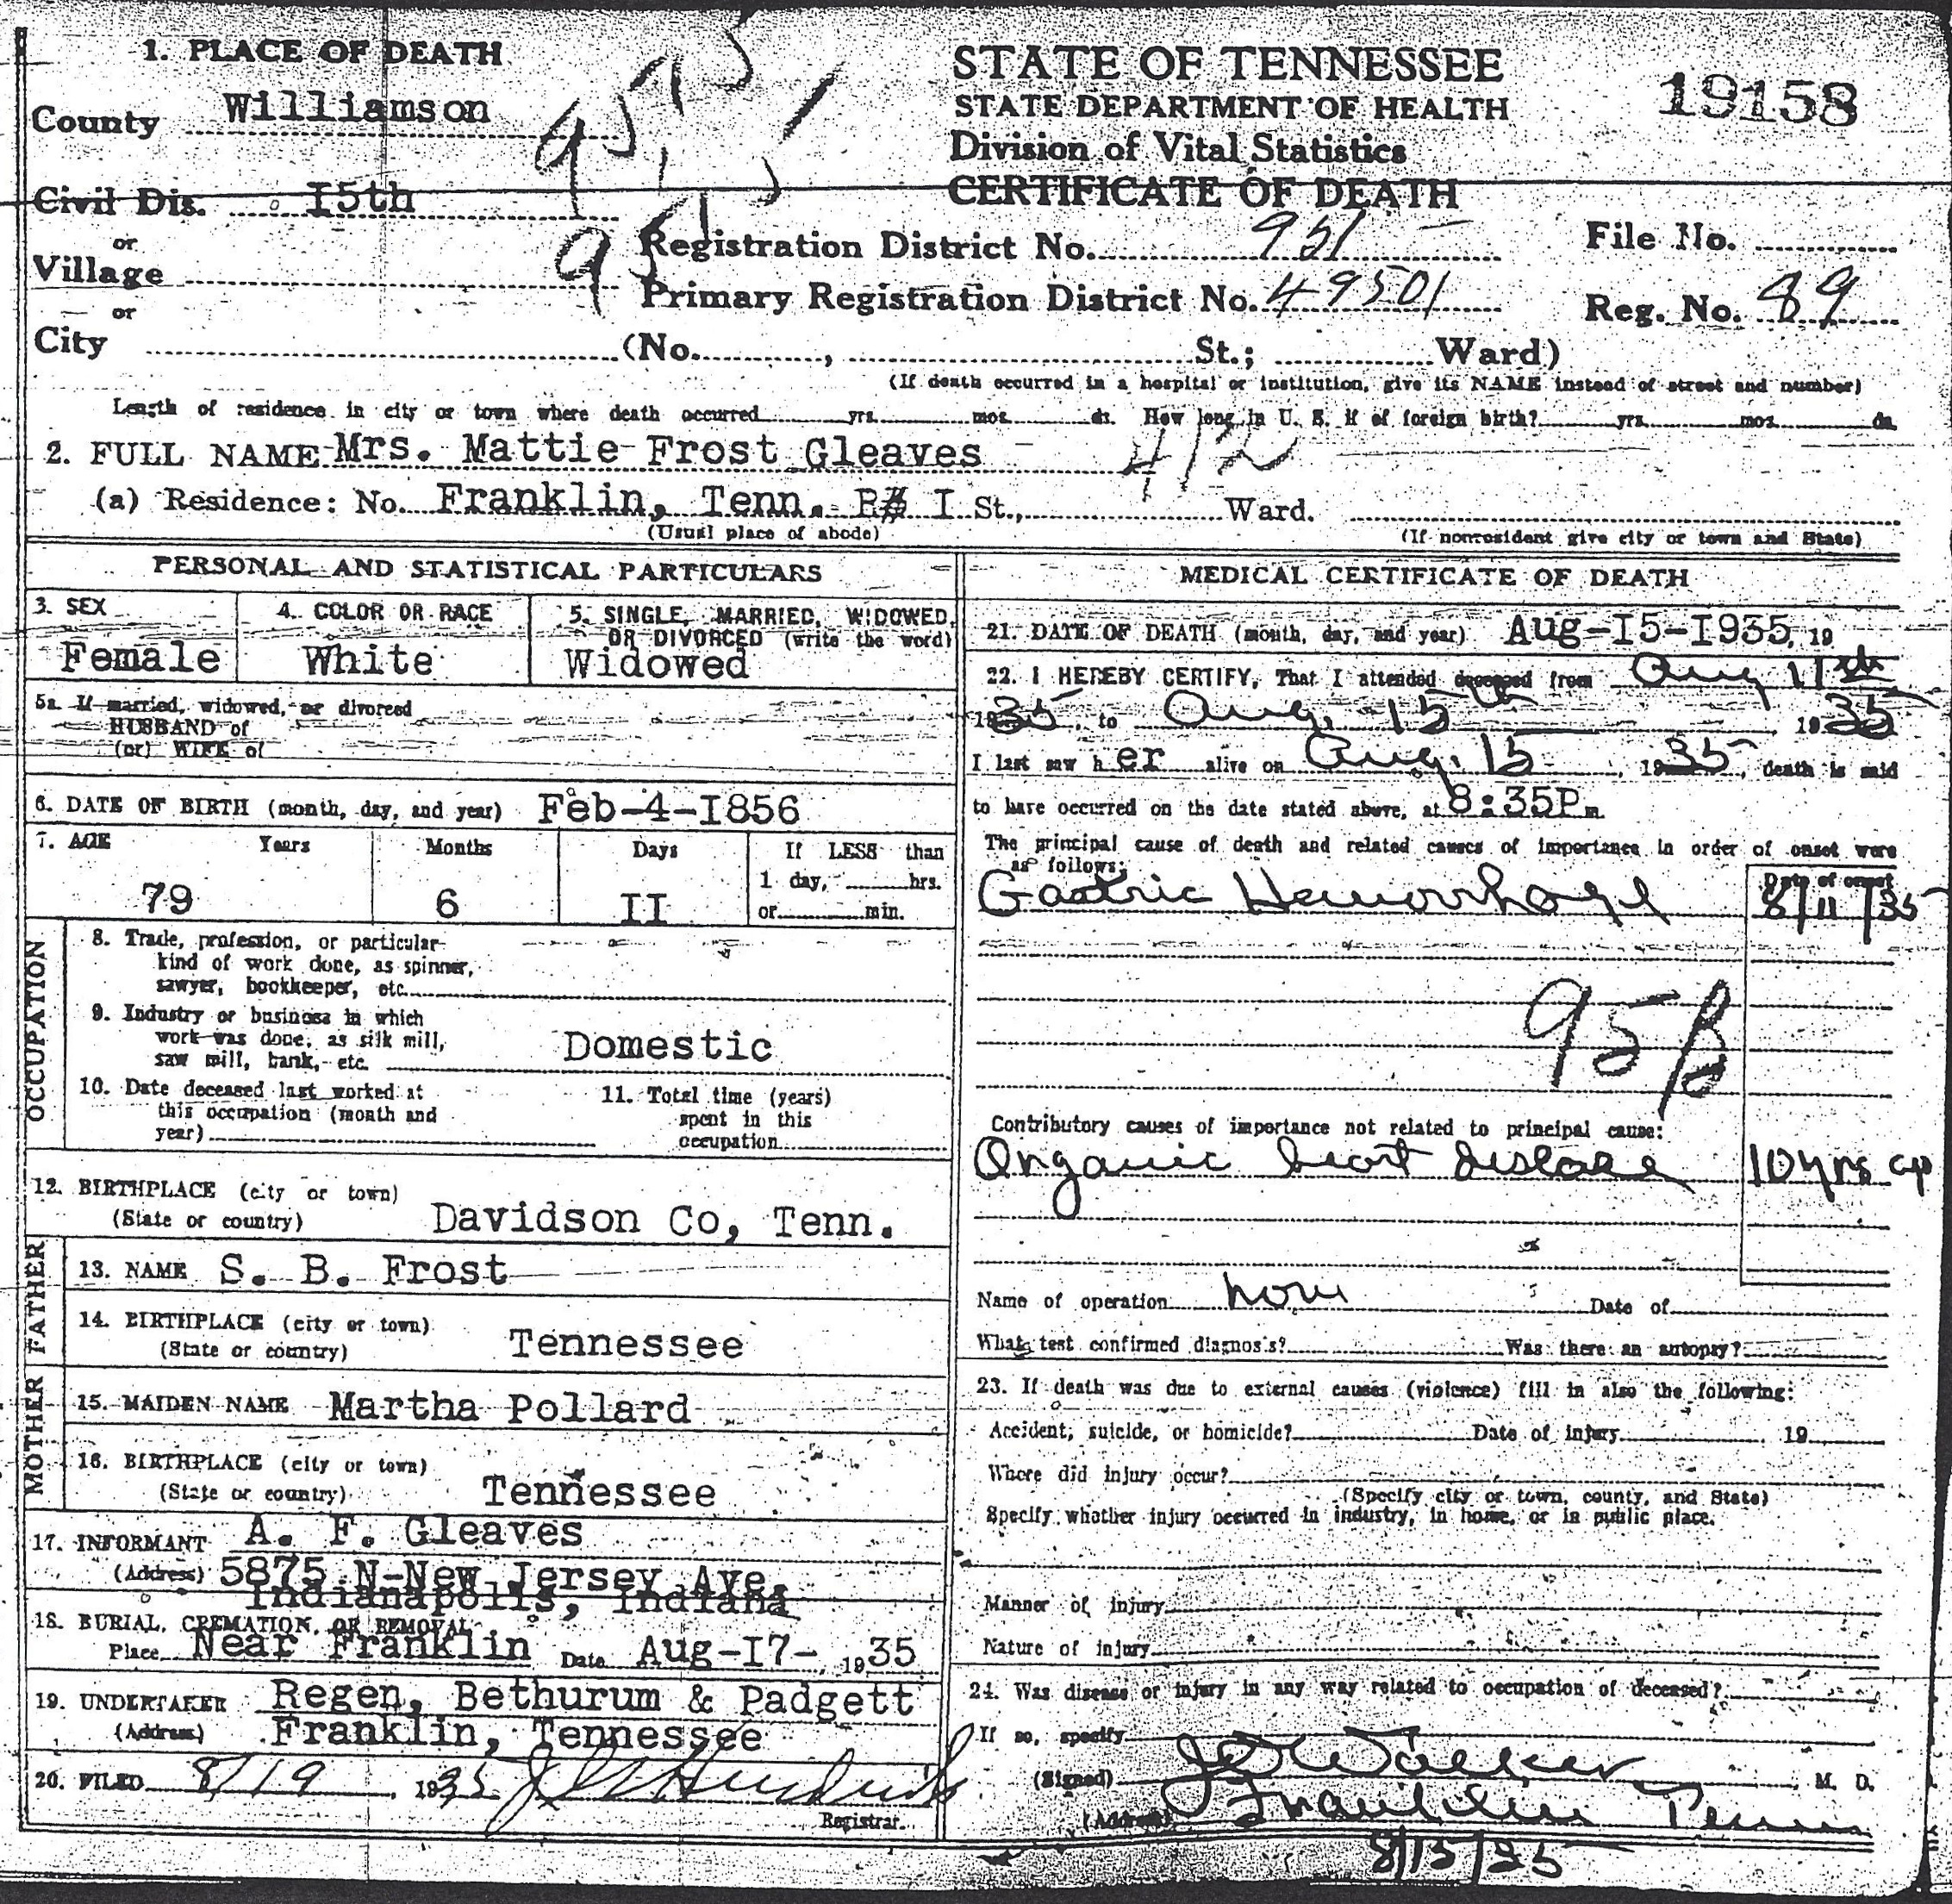 1. PLACE OF DEATH
County Williamson
Civil Dis. I5th
or
Village
or
City (No. , St.; Ward)
STATE OF TENNESSEE
STATE DEPARTMENT OF HEALTH
Division of Vital Statistics
CERTIFICATE OF DEATH
19158
Registration District No. 951
File No.
Primary Registration District No. 49501
Reg. No. 89
(If death occurred in a hospital or institution, give its NAME instead of street and number)
Length of residence in city or town where death occurred yrs. mos. ds. How long in U. S. if of foreign birth? yrs. mos. ds.
2. FULL NAME Mrs. Mattie Frost Gleaves
412
(a) Residence: No. Franklin, Tenn. R# I St., Ward.
(Usual place of abode) (If nonresident give city or town and State)
PERSONAL AND STATISTICAL PARTICULARS
3. SEX
Female
4. COLOR OR RACE
White
5. SINGLE, MARRIED, WIDOWED, OR DIVORCED (write the word)
Widowed
5a. If married, widowed, or divorced
HUSBAND of
(or) WIFE of
6. DATE OF BIRTH (month, day, and year) Feb-4-I856
7. AGE Years Months Days If LESS than
1 day, hrs.
79 6 II or min.
OCCUPATION
8. Trade, profession, or particular
kind of work done, as spinner,
sawyer, bookkeeper, etc.
9. Industry or business in which
work was done, as silk mill,
saw mill, bank, etc. Domestic
10. Date deceased last worked at
this occupation (month and
year)
11. Total time (years)
spent in this
occupation
12. BIRTHPLACE (city or town)
(State or country) Davidson Co, Tenn.
FATHER
13. NAME S. B. Frost
14. BIRTHPLACE (city or town)
(State or country) Tennessee
MOTHER
15. MAIDEN NAME Martha Pollard
16. BIRTHPLACE (city or town)
(State or country) Tennessee
17. INFORMANT A. F. Gleaves
(Address) 5875 N-New Jersey Ave.
Indianapolis, Indiana
18. BURIAL, CREMATION, OR REMOVAL
Place Near Franklin Date Aug-I7-, 1935
19. UNDERTAKER Regen, Bethurum & Padgett
(Address) Franklin, Tennessee
20. FILED 8/19, 1935
Registrar.
MEDICAL CERTIFICATE OF DEATH
21. DATE OF DEATH (month, day, and year) Aug-I5-I935, 19
22. I HEREBY CERTIFY, That I attended deceased from Aug 11th
1935, to Aug. 15th, 1935
I last saw her alive on Aug. 15, 1935, death is said
to have occurred on the date stated above, at 8:35P m.
The principal cause of death and related causes of importance in order of onset were
as follows:
Date of onset
Gastric Hemorrhage 8/11/35
95B
Contributory causes of importance not related to principal cause:
Organic heart disease 10 yrs
Name of operation none Date of
What test confirmed diagnosis? Was there an autopsy?
23. If death was due to external causes (violence) fill in also the following:
Accident, suicide, or homicide? Date of injury 19
Where did injury occur?
(Specify city or town, county, and State)
Specify whether injury occurred in industry, in home, or in public place.
Manner of injury
Nature of injury
24. Was disease or injury in any way related to occupation of deceased?
If so, specify
(Signed) Walker, M. D.
(Address) Franklin Tenn
8/15/35